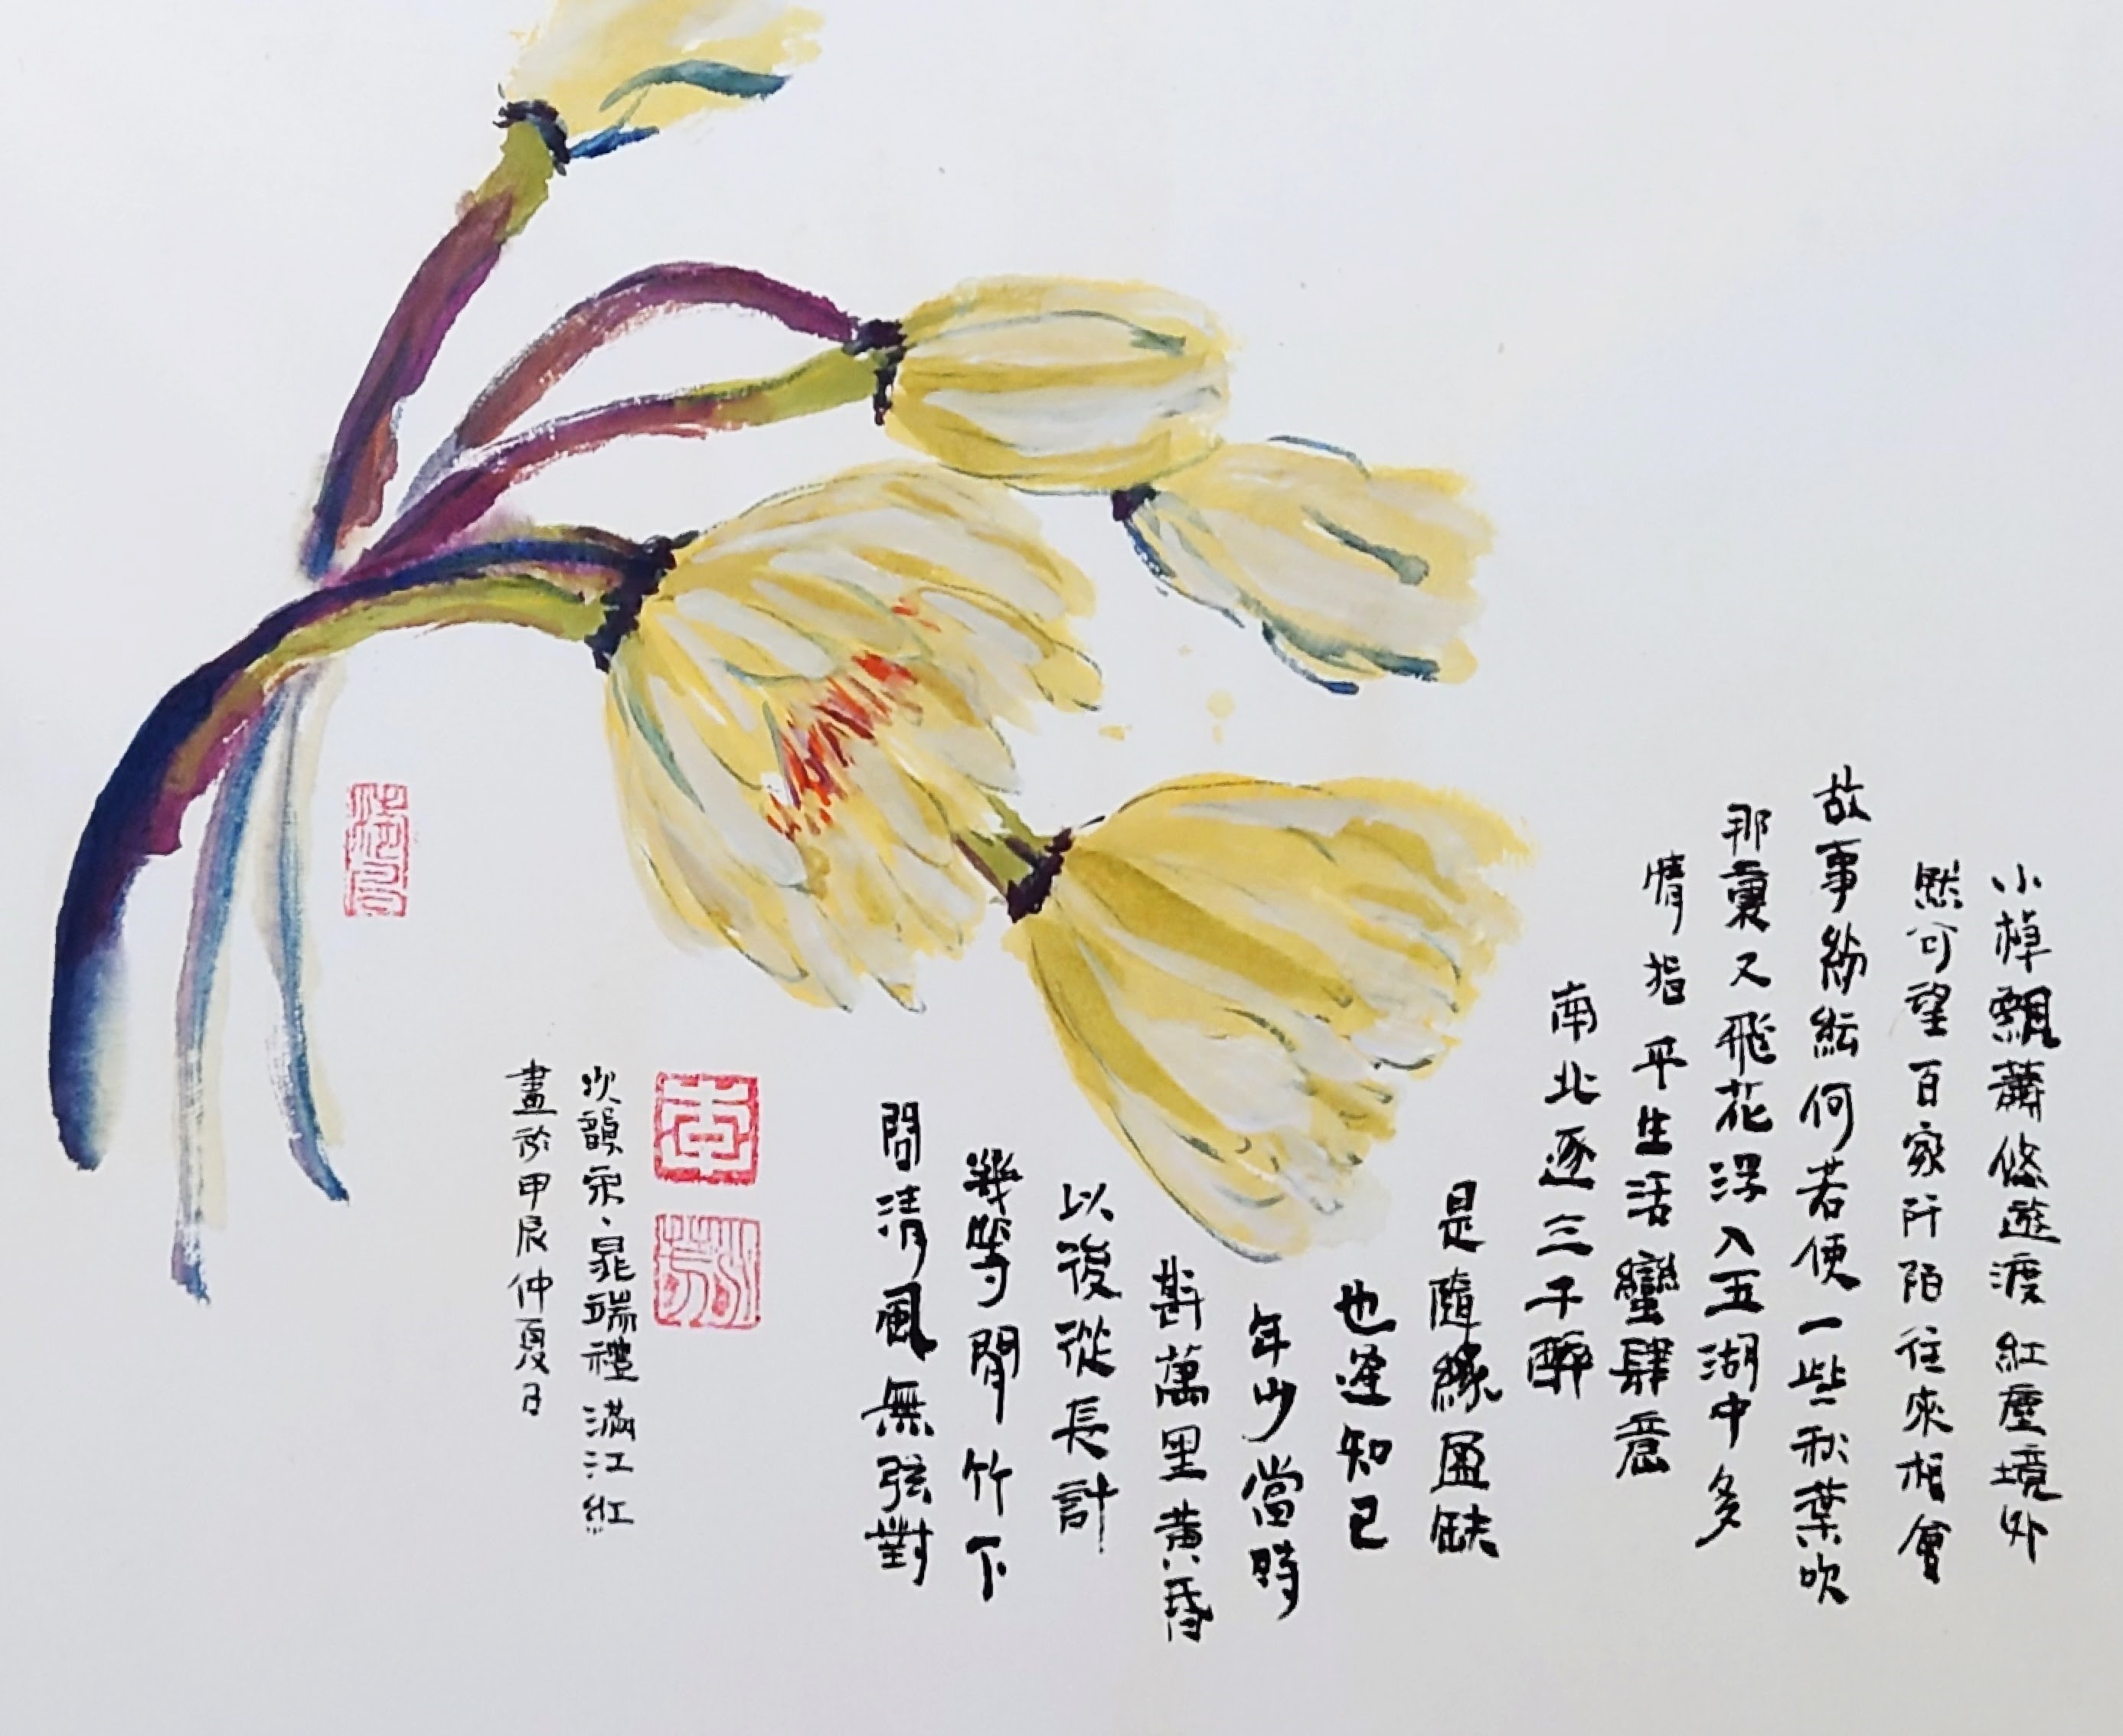 小棹飄蕭悠遊渡紅塵境外
然可望百家阡陌往來相會
故事紛紜何若便一些秋葉吹
那裏又飛花浮入五湖中多
情指平生活蠻肆意
南北逐三千醉
是隨緣盈缺
也逢知已
年少當時
斟萬里黃昏
以後從長計
幾等閒竹下
問清風無弦對
次韻宋、晁端禮滿江紅
畫於甲辰仲夏日